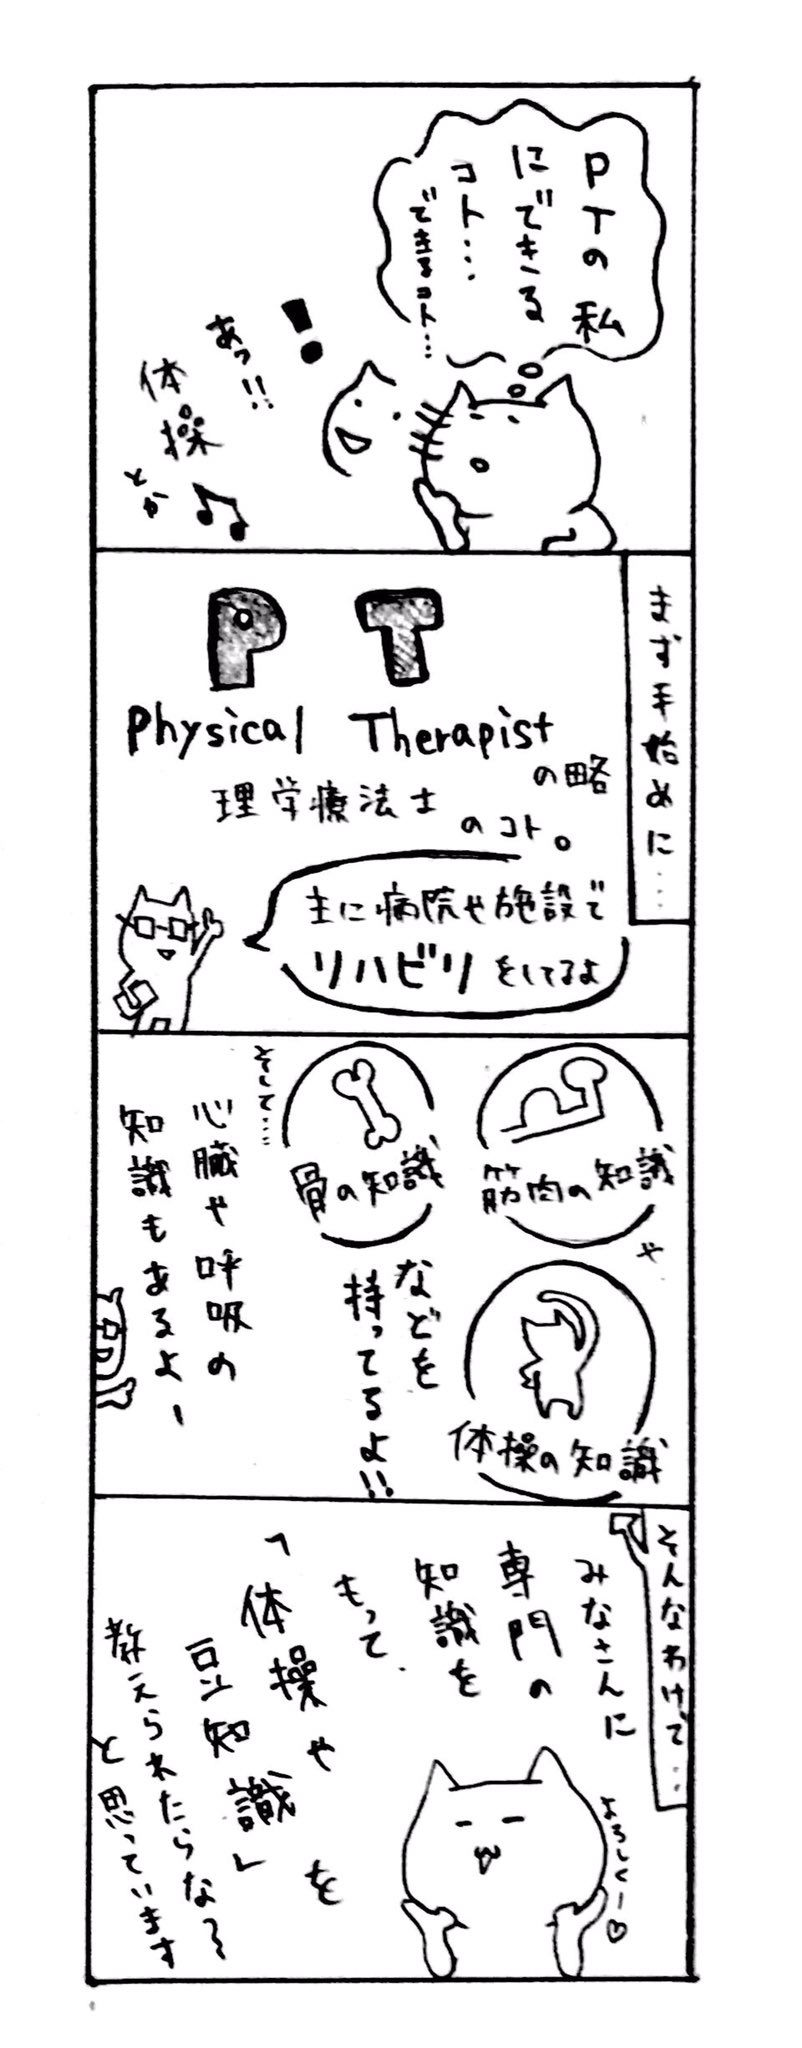 PTの私
にできる
コト…
できるコト…
!
あっ!!
体操
とか
まず手始めに…
PT
Physical Therapist
の略
理学療法士
のコト。
主に病院や施設で
リハビリをしてるよ
筋肉の知識
や
骨の知識
体操の知識
などを
持ってるよ!!
そして…
心臓や呼吸の
知識もあるよー
そんなわけで…
みなさんに
専門の
知識を
もって、
「体操や
豆知識」を
教えられたらな〜
と思っています
よろしくー♡